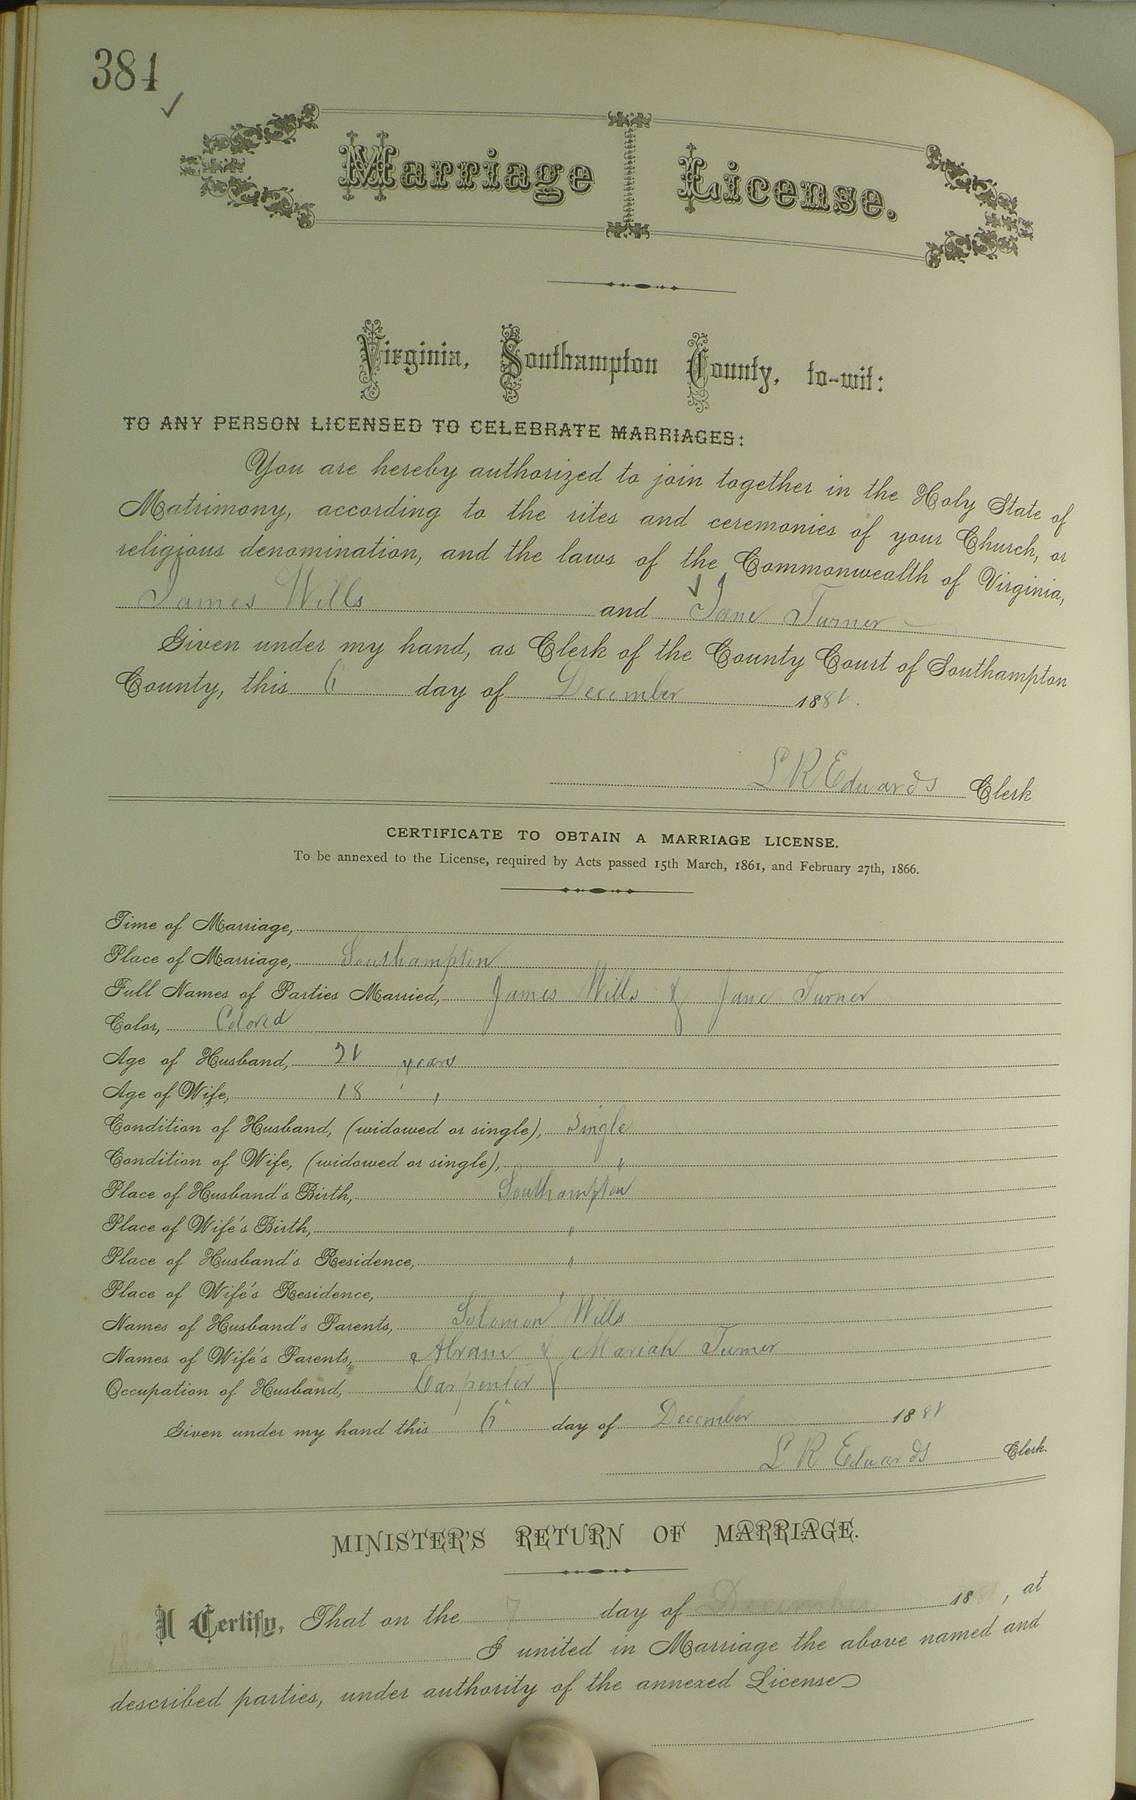 384
Marriage License.
Virginia, Southampton County, to-wit:
TO ANY PERSON LICENSED TO CELEBRATE MARRIAGES:
You are hereby authorized to join together in the Holy State of
Matrimony, according to the rites and ceremonies of your Church, or
religious denomination, and the laws of the Commonwealth of Virginia,
James Wills and Jane Turner
Given under my hand, as Clerk of the County Court of Southampton
County, this 6 day of December 1881.
L R Edwards Clerk
CERTIFICATE TO OBTAIN A MARRIAGE LICENSE.
To be annexed to the License, required by Acts passed 15th March, 1861, and February 27th, 1866.
Time of Marriage,
Place of Marriage, Southampton
Full Names of Parties Married, James Wills & Jane Turner
Color, Colored
Age of Husband, 21 years
Age of Wife, 18 "
Condition of Husband, (widowed or single), Single
Condition of Wife, (widowed or single), "
Place of Husband's Birth, Southampton
Place of Wife's Birth, "
Place of Husband's Residence, "
Place of Wife's Residence, "
Names of Husband's Parents, Solomon Wills
Names of Wife's Parents, Abram & Mariah Turner
Occupation of Husband, Carpenter
Given under my hand this 6" day of December 1881
L R Edwards Clerk.
MINISTER'S RETURN OF MARRIAGE.
I Certify, That on the 7 day of December 188 , at
I united in Marriage the above named and
described parties, under authority of the annexed License